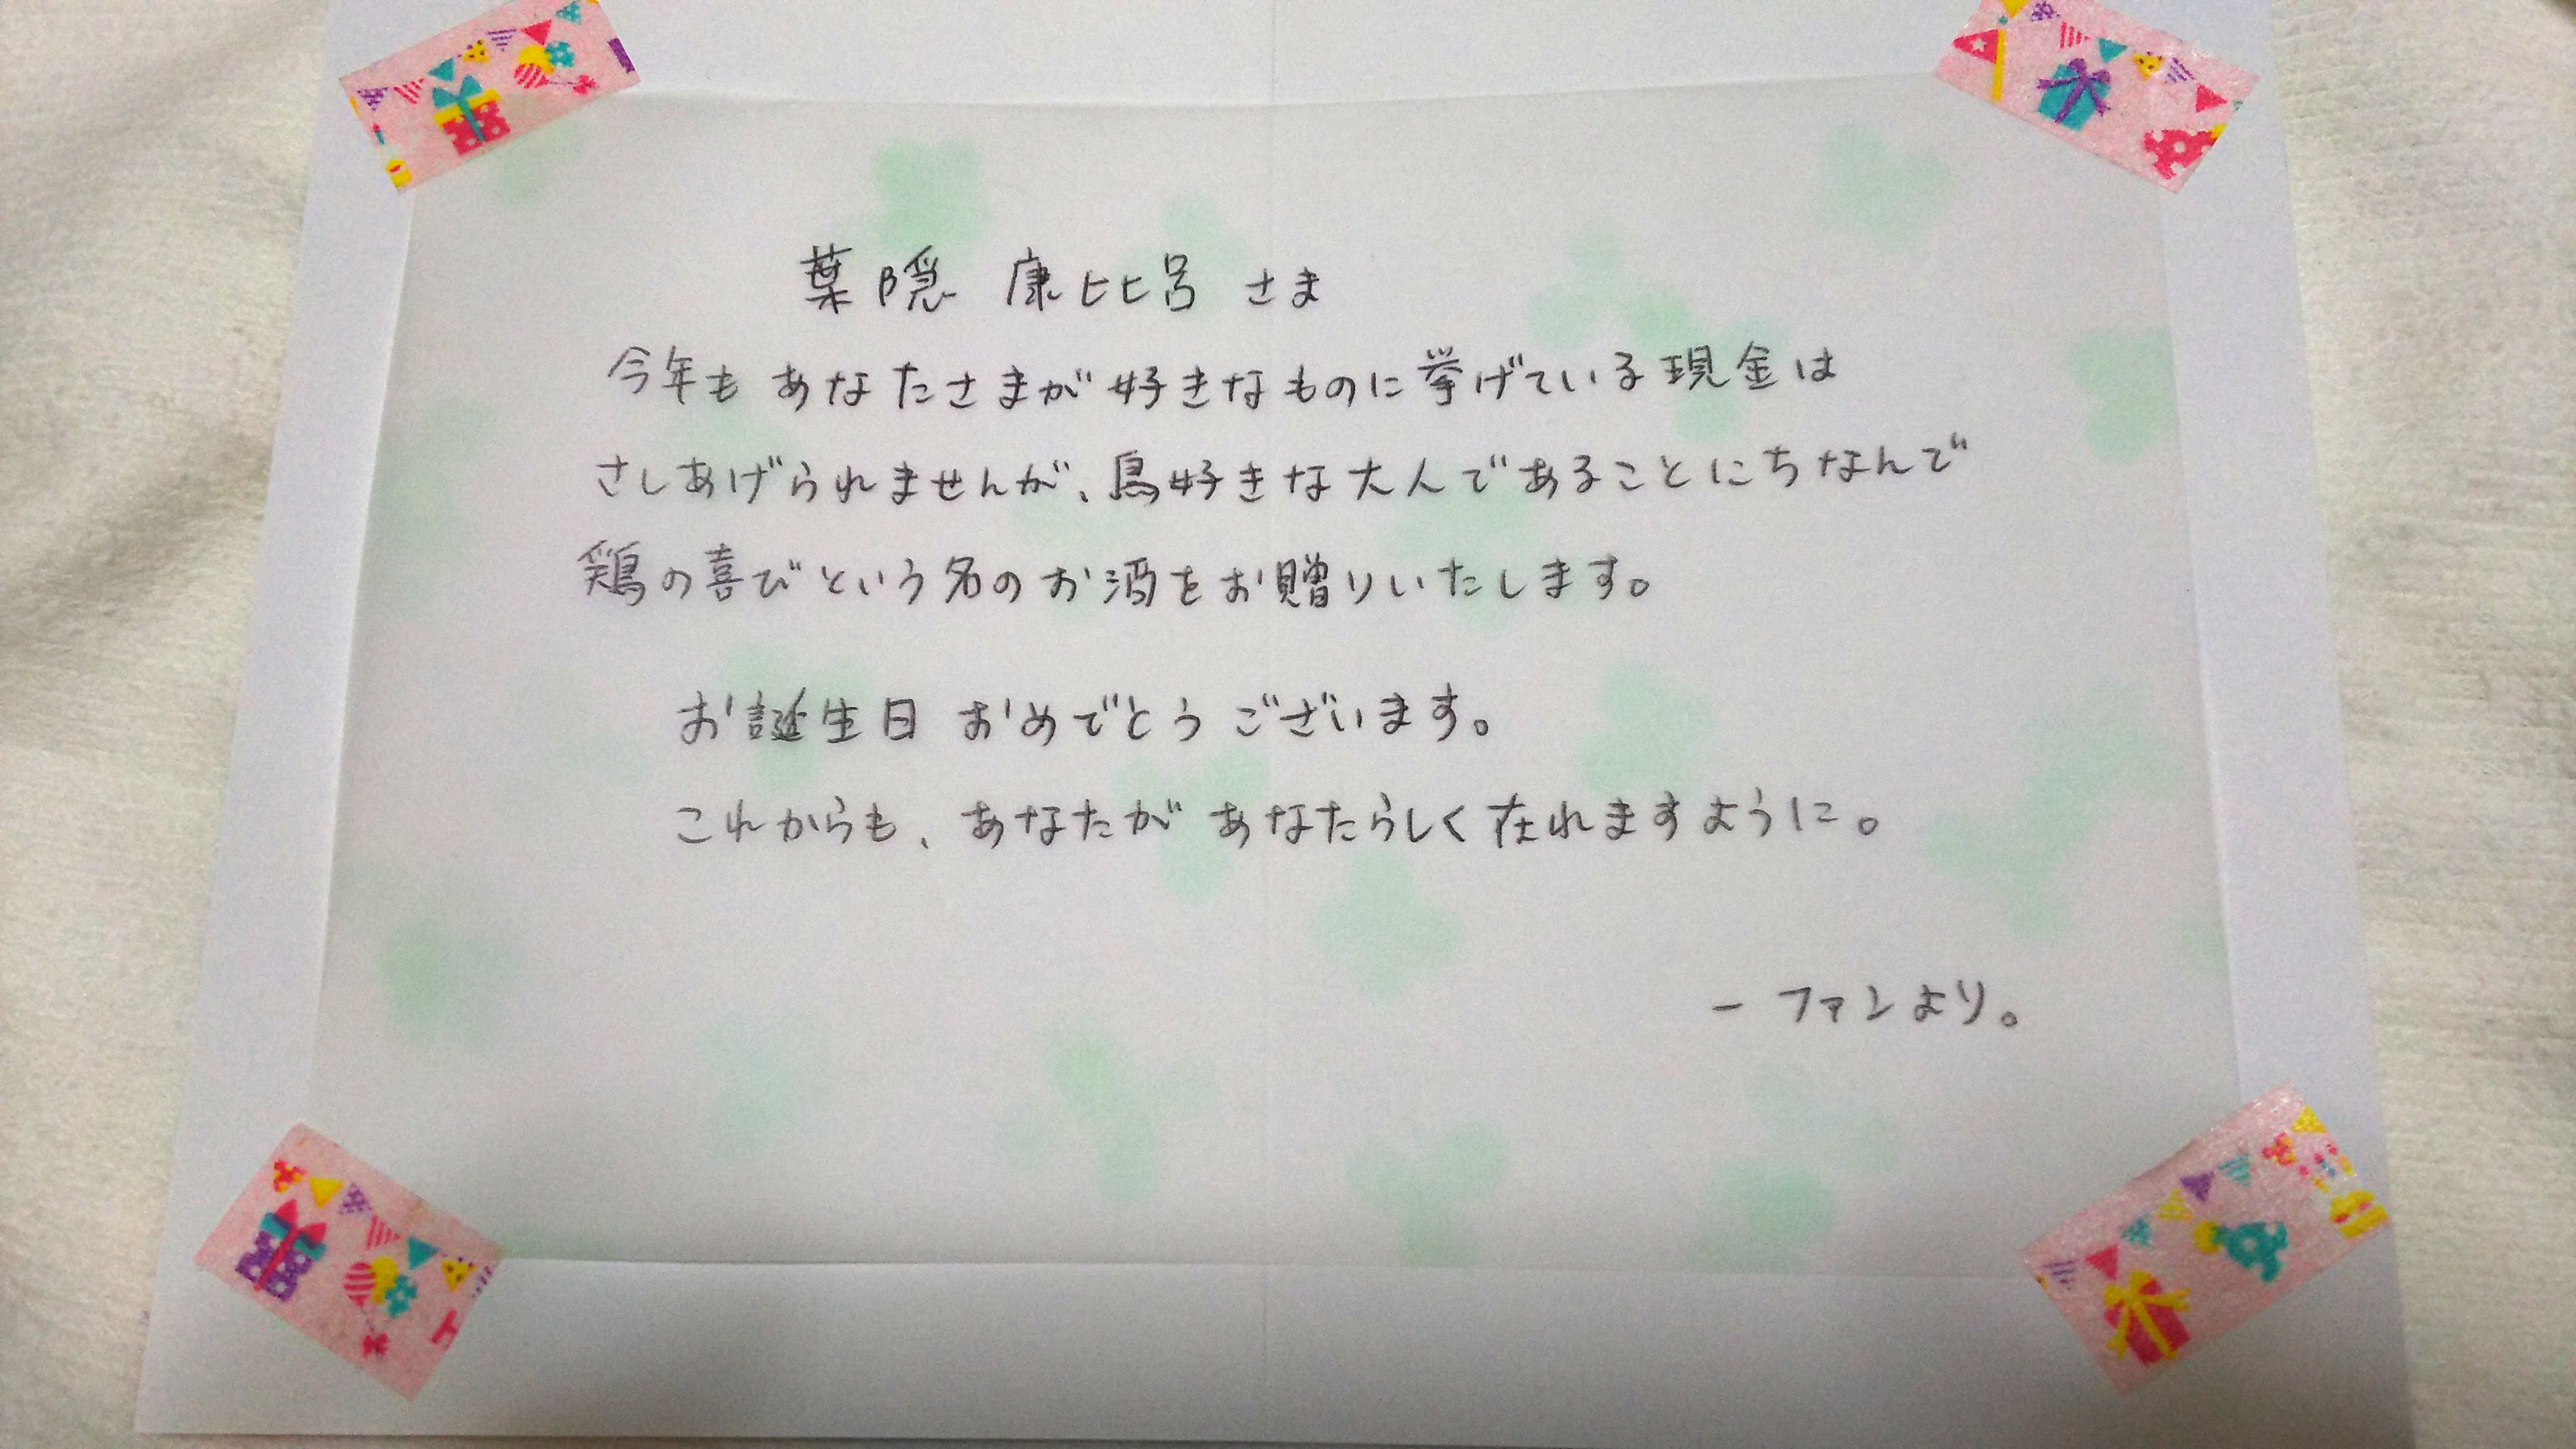 葉隠 康比呂 さま
今年も あなたさまが好きなものに挙げている現金は
さしあげられませんが、鳥好きな大人であることにちなんで
鶏の喜びという名のお酒をお贈りいたします。
お誕生日 おめでとう ございます。
これからも、あなたが あなたらしく在れますように。
－ファンより。